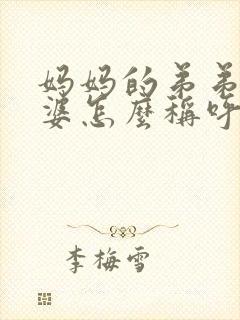 妈妈的弟弟
婆怎麼稱呼
李梅雪